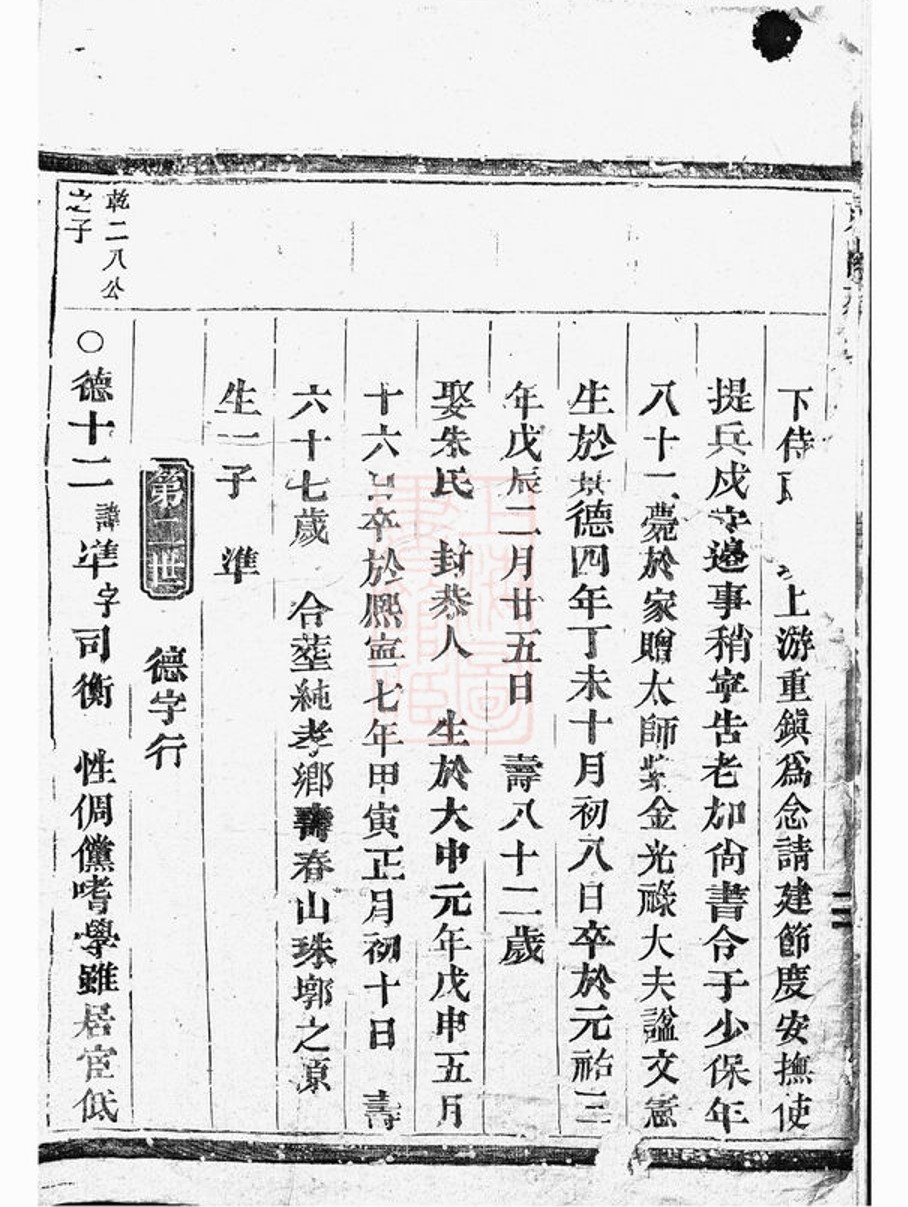 下侍 上游重鎭爲念請建節度安撫使
提兵戍守邉事稍寧告老加尙書令于少保年
八十一薨於家贈太師紫金光祿大夫諡文憲
生於景德四年丁未十月初八日卒於元祐三
年戊辰二月廿五日 壽八十二歲
娶朱氏 封恭人 生於大中元年戊申五月
十六日卒於熈寧七年甲寅正月初十日 壽
六十七歲 合塟純孝鄉壽春山珠郭之原
生一子 準
第 世 德字行
乾二八公
之子
○德十二 諱準字司衡 性倜儻嗜學雖居官低